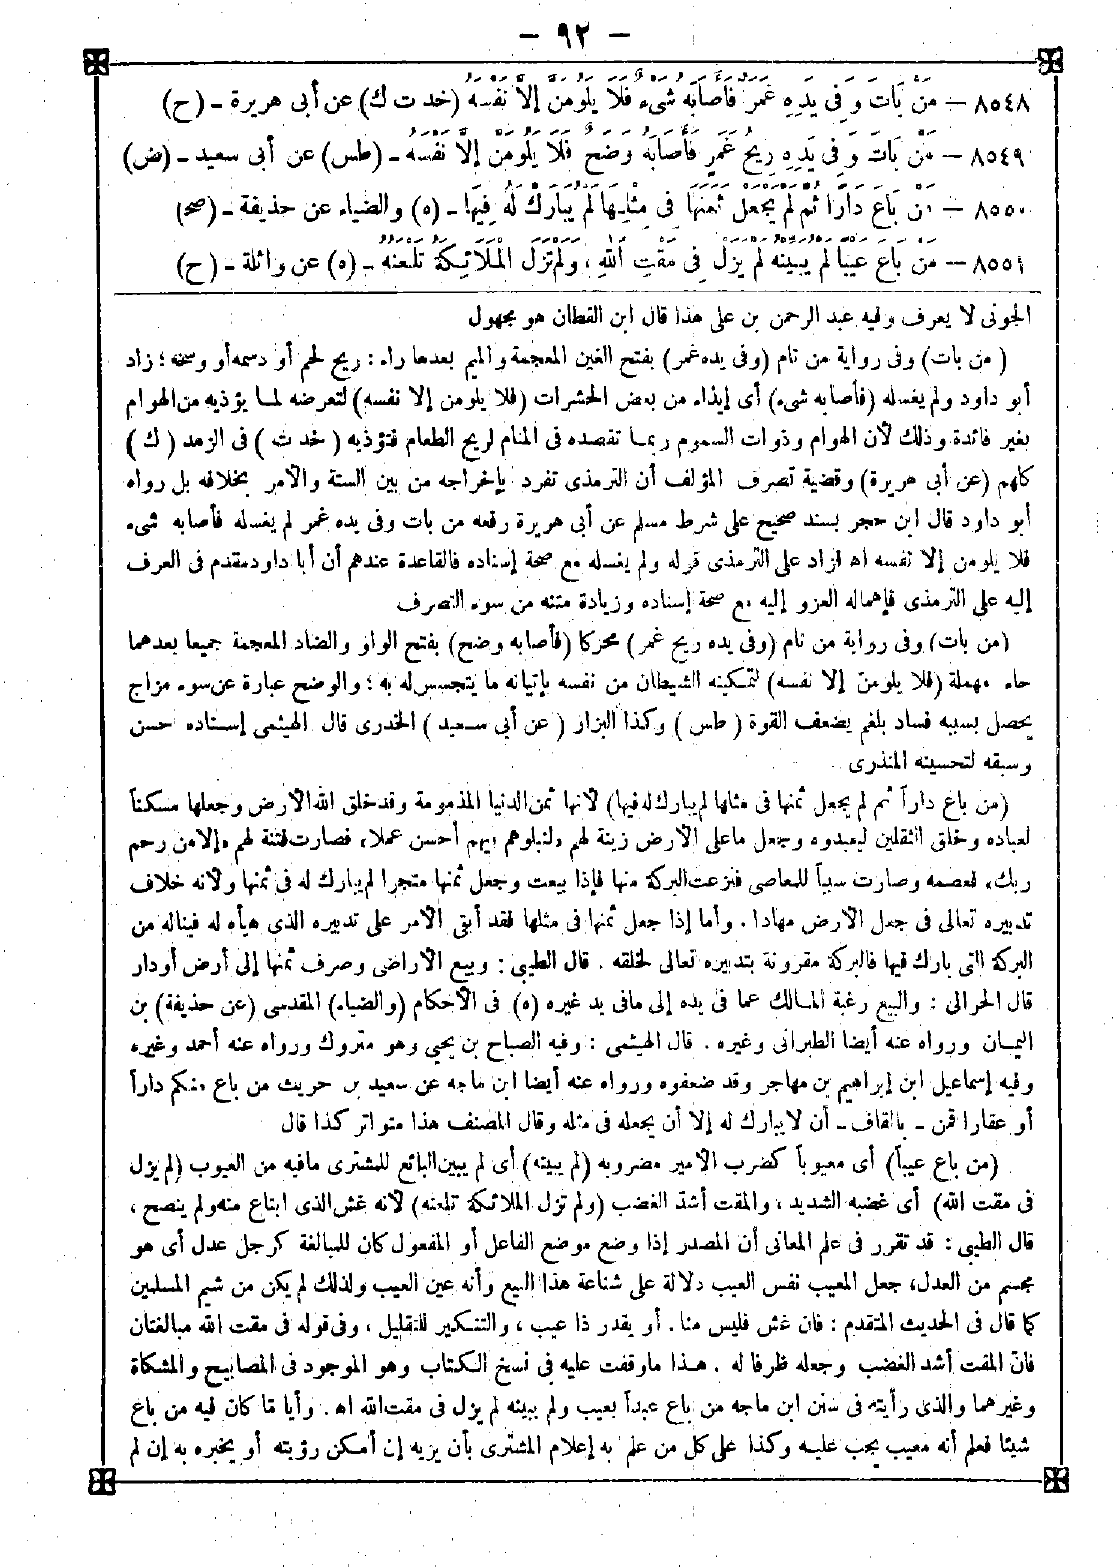 - ٩٢ -
٨٥٤٨ - مَنْ بَاتَ وَفِى يَدِهِ غَمَرٌ فَأَصَابَهُ شَىْءٌ فَلَا يَلُومَنَّ إِلَّا نَفْسَهُ (خد ت ك) عن أبى هريرة - (ح)
٨٥٤٩ - مَنْ بَاتَ وَفِى يَدِهِ رِيحُ غَمَرٍ فَأَصَابَهُ وَضَحٌ فَلَا يَلُومَنَّ إِلَّا نَفْسَهُ - (طس) عن أبى سعيد - (ض)
٨٥٥٠ - مَنْ بَاعَ دَارًا ثُمَّ لَمْ يَجْعَلْ ثَمَنَهَا فِى مِثْلِهَا لَمْ يُبَارَكْ لَهُ فِيهَا - (ه) والضياء عن حذيفة - (صح)
٨٥٥١ - مَنْ بَاعَ عَيْبًا لَمْ يُبَيِّنْهُ لَمْ يَزَلْ فِى مَقْتِ اللهِ، وَلَمْ تَزَلِ الْمَلَائِكَةُ تَلْعَنُهُ - (ه) عن واثلة - (ح)
الجونى لا يعرف وفيه عبد الرحمن بن على هذا قال ابن القطان هو مجهول
(من بات) وفى رواية من نام (وفى يده غمر) بفتح الغين المعجمة والميم بعدها راء : ريح لحم أو دسمه أو وسخه ؛ زاد
أبو داود ولم يغسله (فأصابه شىء) أى إيذاء من بعض الحشرات (فلا يلومن إلا نفسه) لتعرضه لما يؤذيه من الهوام
بغير فائدة وذلك لأن الهوام وذوات السموم ربما تقصده فى المنام لريح الطعام فتؤذيه (خد ت) فى الزهد (ك)
كلهم (عن أبى هريرة) وقضية تصرف المؤلف أن الترمذى تفرد بإخراجه من بين الستة والأمر بخلافه بل رواه
أبو داود قال ابن حجر بسند صحيح على شرط مسلم عن أبى هريرة رفعه من بات وفى يده غمر لم يغسله فأصابه شىء
فلا يلومن إلا نفسه اه ازاد على الترمذى قوله ولم يغسله مع صحة إسناده فالقاعدة عندهم أن أبا داود مقدم فى العرف
إليه على الترمذى فإهماله العزو إليه مع صحة إسناده وزيادة متنه من سوء التصرف
(من بات) وفى رواية من نام (وفى يده ريح غمر) محركا (فأصابه وضح) بفتح الواو والضاد المعجمة جميعا بعدهما
حاء مهملة (فلا يلومن إلا نفسه) لتمكينه الشيطان من نفسه بإتيانه ما يتجسس له به ؛ والوضح عبارة عن سوء مزاج
يحصل بسببه فساد بلغم يضعف القوة (طس) وكذا البزار (عن أبى سعيد) الخدرى قال الهيثمى إسناده حسن
وسبقه لتحسينه المنذرى
(من باع داراً ثم لم يجعل ثمنها فى مثلها لم يبارك له فيها) لأنها ثمن الدنيا المذمومة وقد خلق الله الأرض وجعلها مسكناً
لعباده وخلق الثقلين ليعبدوه وجعل ما على الأرض زينة لهم «لنبلوهم أيهم أحسن عملا» فصارت فتنة لهم «إلا من رحم
ربك» فعصمه وصارت سبباً للمعاصى فنزعت البركة منها فإذا بيعت وجعل ثمنها متجرا لم يبارك له فى ثمنها ولأنه خلاف
تدبيره تعالى فى جعل الأرض مهادا . وأما إذا جعل ثمنها فى مثلها فقد أبقى الأمر على تدبيره الذى هيأه له فيناله من
البركة التى بارك فيها فالبركة مقرونة بتدبيره تعالى لخلقه . قال الطيبى : وبيع الأراضى وصرف ثمنها إلى أرض أو دار
قال الحرالى : والبيع رغبة المالك عما فى يده إلى ما فى يد غيره (ه) فى الأحكام (والضياء) المقدسى (عن حذيفة) بن
اليمان ورواه عنه أيضا الطبرانى وغيره . قال الهيثمى : وفيه الصباح بن يحيى وهو متروك ورواه عنه أحمد وغيره
وفيه إسماعيل ابن إبراهيم بن مهاجر وقد ضعفوه ورواه عنه أيضا ابن ماجه عن سعيد بن حريث من باع منكم داراً
أو عقارا قمن - بالقاف - أن لا يبارك له إلا أن يجعله فى مثله وقال المصنف هذا متواتر كذا قال
(من باع عيباً) أى معيوباً كضرب الأمير مضروبه (لم يبينه) أى لم يبين البائع للمشترى ما فيه من العيوب (لم يزل
فى مقت الله) أى غضبه الشديد ، والمقت أشد الغضب (ولم تزل الملائكة تلعنه) لأنه غش الذى ابتاع منه ولم ينصح ،
قال الطيبى : قد تقرر فى علم المعانى أن المصدر إذا وضع موضع الفاعل أو المفعول كان للمبالغة كرجل عدل أى هو
مجسم من العدل، جعل المعيب نفس العيب دلالة على شناعة هذا البيع وأنه عين العيب ولذلك لم يكن من شيم المسلمين
كما قال فى الحديث المتقدم : فان غش فليس منا . أو يقدر ذا عيب ، والتنكير للتقليل ، وفى قوله فى مقت الله مبالغتان
فان المقت أشد الغضب وجعله ظرفا له . هذا ما وقفت عليه فى نسخ الكتاب وهو الموجود فى المصابيح والمشكاة
وغيرهما والذى رأيته فى سنن ابن ماجه من باع عبداً بعيب ولم يبينه لم يزل فى مقت الله اه . وأيا ما كان فيه من باع
شيئا فعلم أنه معيب يجب عليه وكذا على كل من علم به إعلام المشترى بأن يريه إن أمكن رؤيته أو يخبره به إن لم